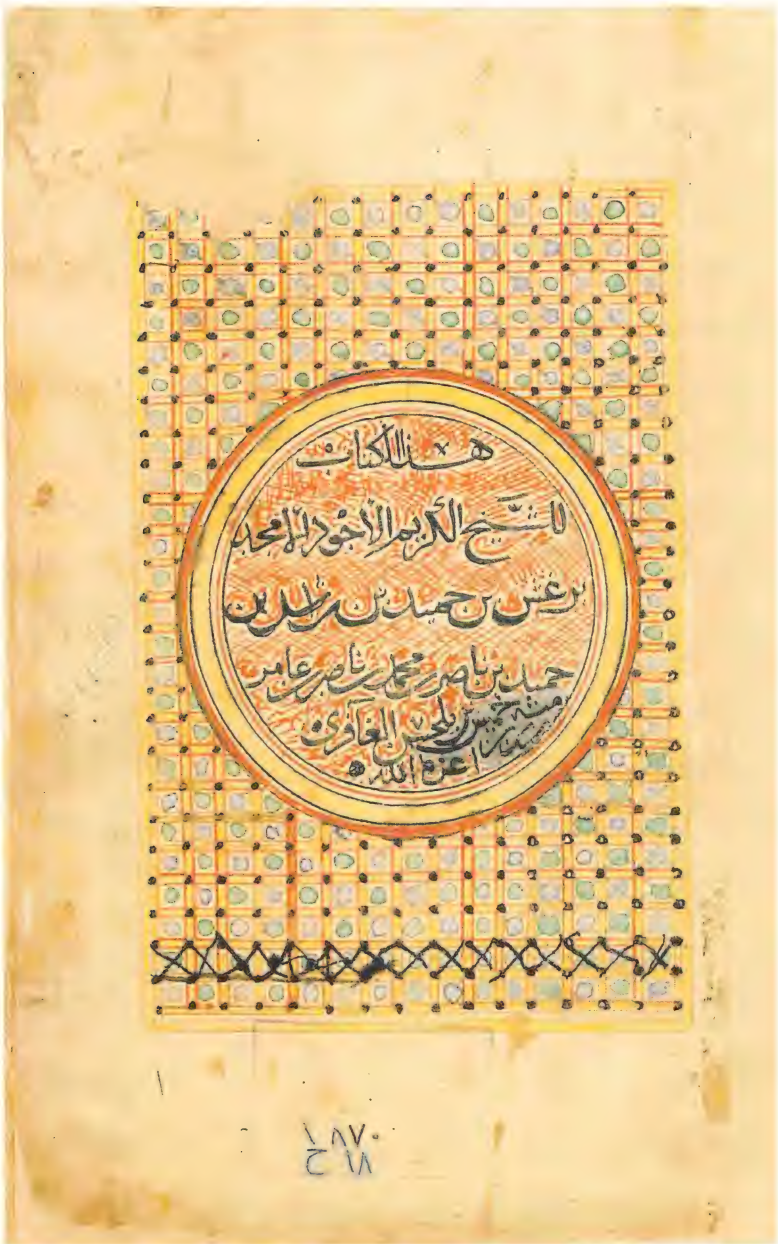 هذا الكتاب
للشيخ الكريم الأجود الأمجد
برغش بن حميد بن راشد بن
حميد بن ناصر بن محمد بن ناصر بن عامر
بن خميس بن بلحسن الغافري
أعزه الله
١
١٨٧٠
١٨ ح